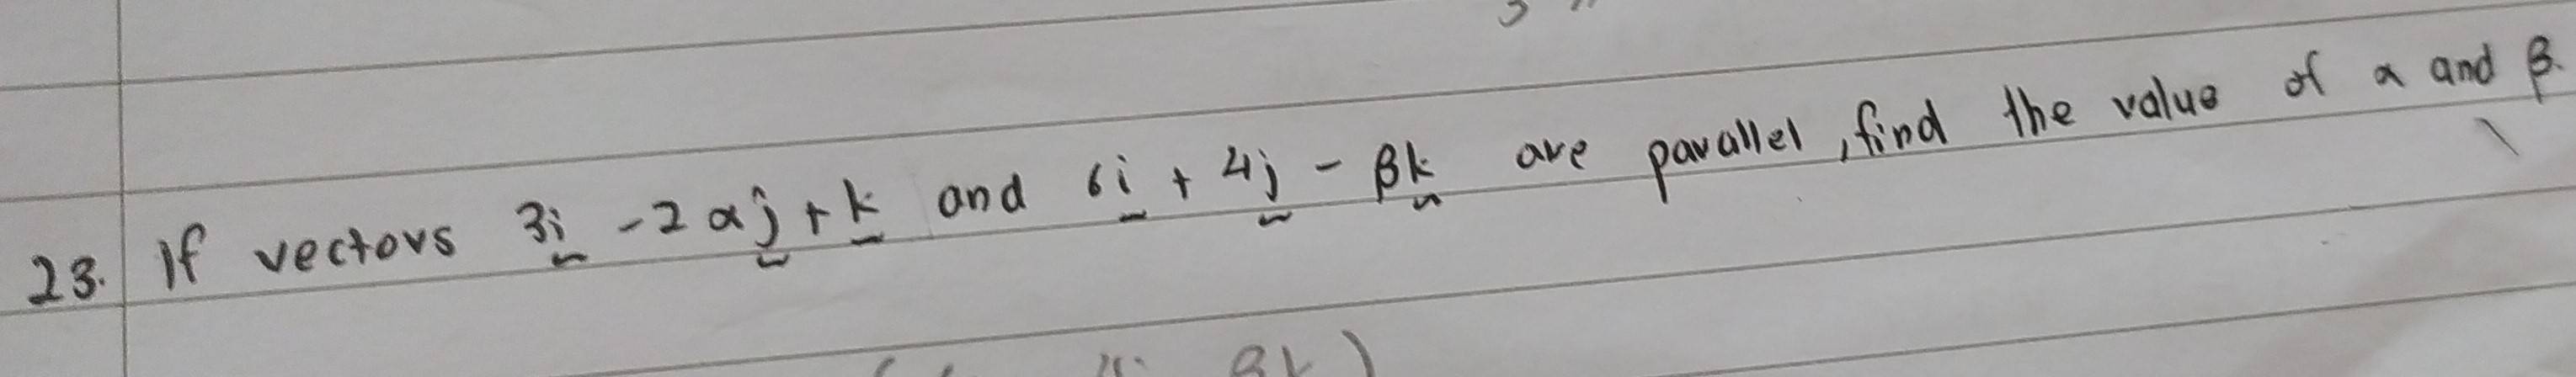 23. If vectors 3i - 2αj + k and 6i + 4j - βk are parallel, find the value of α and β.